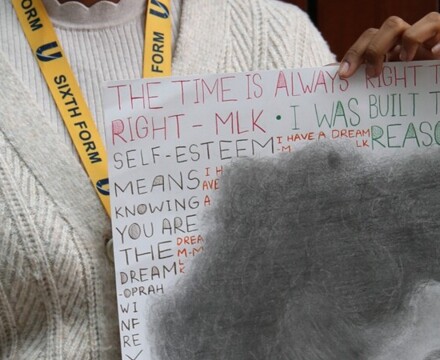 FORM
SIXTH FORM
FORM
THE TIME IS ALWAYS RIGHT T
RIGHT - MLK • I WAS BUILT T
SELF-ESTEEM
I HAVE A DREAM
-M LK
REASO
MEANS
I H
AVE
A
KNOWING
YOU ARE
THE
DREA
M-M
L
K
DREAM
-OPRAH
WI
NF
RE
Y